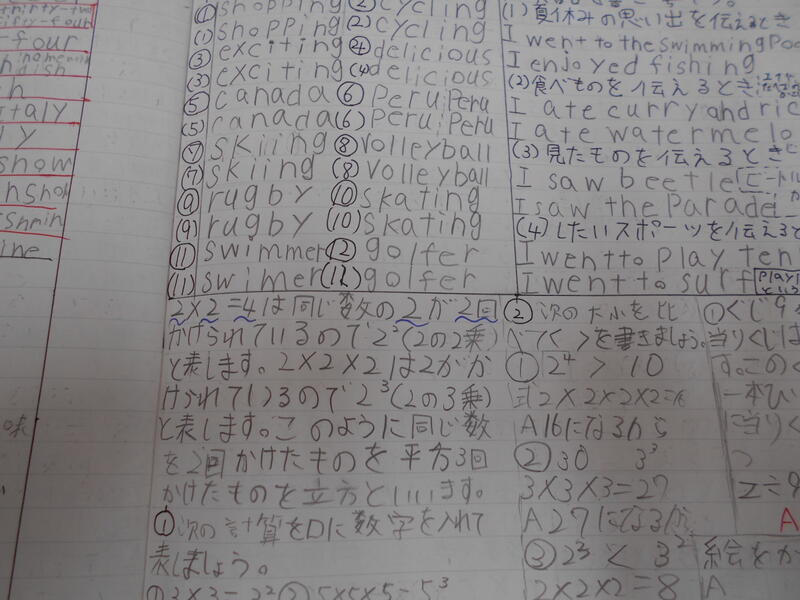 four
taly
ly
show
ine
① shopping ② cycling
(1) shopping (2) cycling
③ exciting ④ delicious
(3) exciting (4) delicious
⑤ canada ⑥ Peru:Peru
(5) canada (6) Peru:Peru
⑦ skiing ⑧ volleyball
(7) skiing (8) volleyball
⑨ rugby ⑩ skating
(9) rugby (10) skating
⑪ swimmer ⑫ golfer
(11) swimer (12) golfer
(1) 夏休みの思い出を伝えるとき
I went to the swimming Poo
I enjoyed fishing
(2) 食べものを伝えるとき
I ate curry and ric
I ate watermelo
(3) 見たものを伝えるとき
I saw beetle
I saw the Parade
(4) したいスポーツを伝えると
I went to play ten
I went to surf
2×2=4は同じ数の2が2回
かけられているので2²(2の2乗)
と表します。2×2×2は2がか
けられているので2³(2の3乗)
と表します。このように同じ数
を2回かけたものを平方3回
かけたものを立方といいます。
①次の計算を□に数字を入れて
表しましょう。
①3×3=3²②5×5×5=5³
②次の大小を比
べて<>を書きましょう。
① 2⁴ > 10
式2×2×2×2=16
A16になるから
② 30 3³
3×3×3=27
A27になるから
③ 2³ < 3²
2×2×2=8
①くじ9
当りくじは
す。このく
一本ひ
に当りく
つ
2÷9
A
絵をか
A